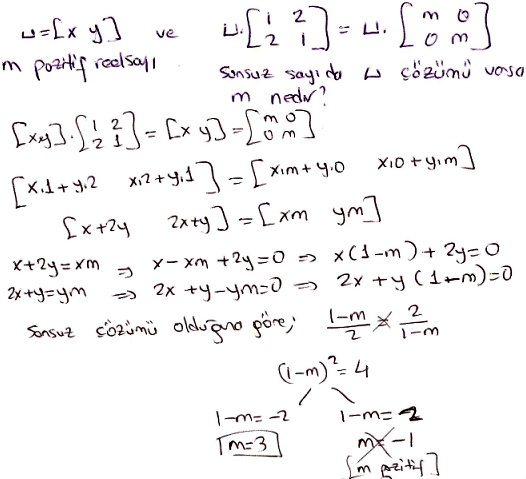 u=[x y] ve u.[1 2 2 1] = u.[m 0 0 m]
m pozitif reelsayı sonsuz sayıda u çözümü varsa
m nedir?
[x,y].[1 2 2 1] = [x y] = [m 0 0 m]
[x.1+y.2 x.2+y.1] = [x.m+y.0 x.0+y.m]
[x+2y 2x+y] = [xm ym]
x+2y=xm ⇒ x-xm+2y=0 ⇒ x(1-m)+2y=0
2x+y=ym ⇒ 2x+y-ym=0 ⇒ 2x+y(1-m)=0
Sonsuz çözümü olduğuna göre; 1-m/2 = 2/1-m
(1-m)²=4
1-m=-2 1-m=2
m=3 m=-1
[m pozitif]